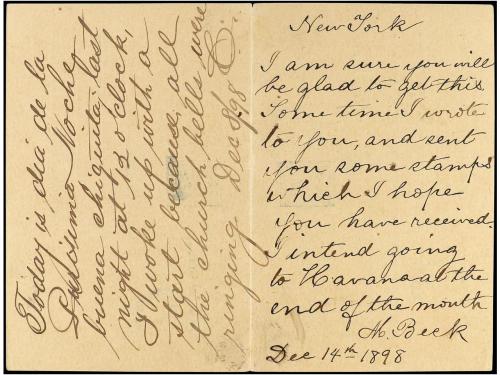 Today is dia de la
Purissima Noche
buena chiquita last
night at 12 o'clock,
I woke up with a
start because, all
the church bells were
ringing Dec 8/98
New York
I am sure you will
be glad to get this
Some time I wrote
to you, and sent
you some stamps
which I hope
you have received.
I intend going
to Havana at the
end of the mouth
M. Beck
Dec 14th 1898